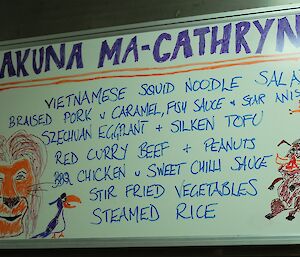 AKUNA MA-CATHRYN
VIETNAMESE SQUID NOODLE SALA
BRAISED PORK w CARAMEL, FISH SAUCE + STAR ANIS
SZECHUAN EGGPLANT + SILKEN TOFU
RED CURRY BEEF + PEANUTS
BBQ CHICKEN w SWEET CHILLI SAUCE
STIR FRIED VEGETABLES
STEAMED RICE